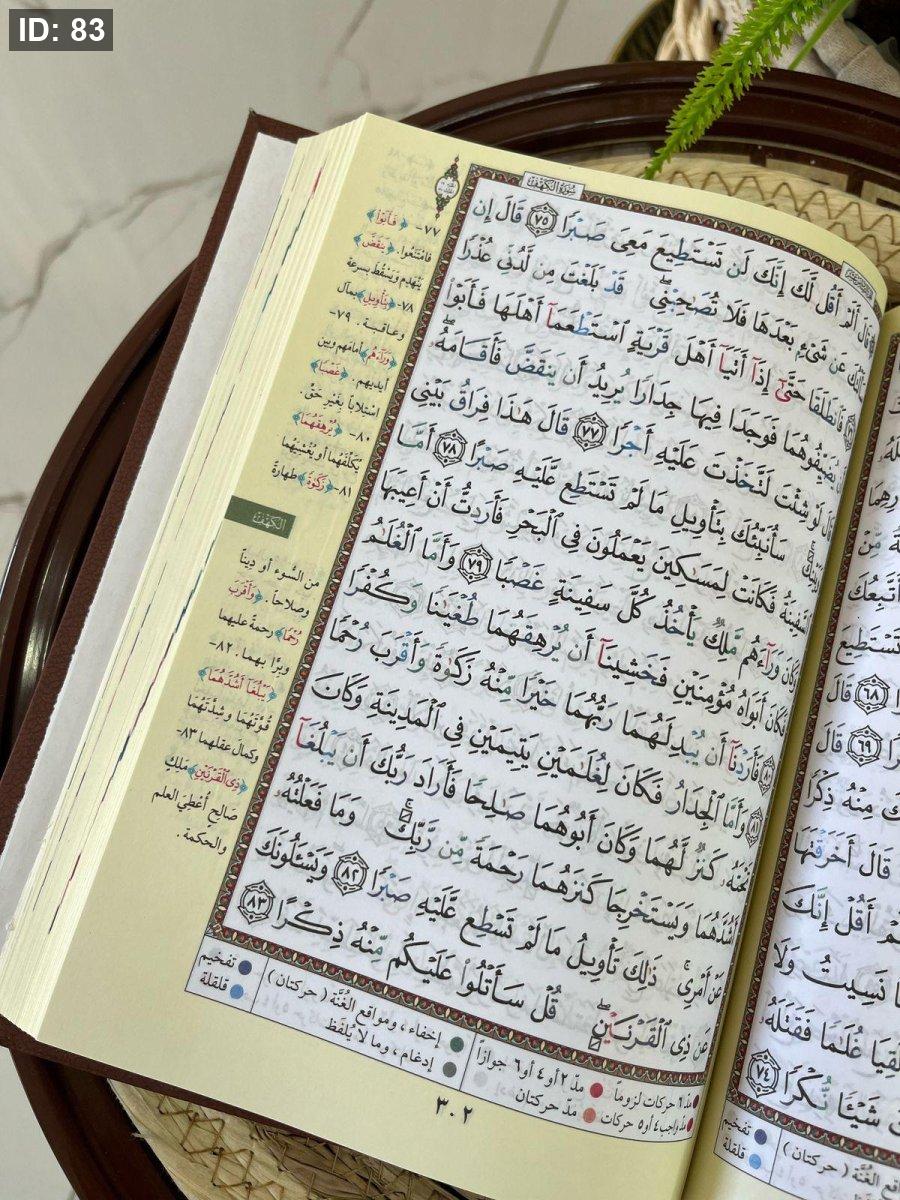 ID: 83
سُورَةُ الكَهْفِ
قَالَ أَلَمْ أَقُل لَّكَ إِنَّكَ لَن تَسْتَطِيعَ مَعِىَ صَبْرًا ٧٥ قَالَ إِن
سَأَلْتُكَ عَن شَىْءٍۭ بَعْدَهَا فَلَا تُصَٰحِبْنِى ۖ قَدْ بَلَغْتَ مِن لَّدُنِّى عُذْرًا
فَٱنطَلَقَا حَتَّىٰٓ إِذَآ أَتَيَآ أَهْلَ قَرْيَةٍ ٱسْتَطْعَمَآ أَهْلَهَا فَأَبَوْا۟
أَن يُضَيِّفُوهُمَا فَوَجَدَا فِيهَا جِدَارًا يُرِيدُ أَن يَنقَضَّ فَأَقَامَهُۥ ۖ
قَالَ لَوْ شِئْتَ لَتَّخَذْتَ عَلَيْهِ أَجْرًا ٧٧ قَالَ هَٰذَا فِرَاقُ بَيْنِى
وَبَيْنِكَ ۚ سَأُنَبِّئُكَ بِتَأْوِيلِ مَا لَمْ تَسْتَطِع عَّلَيْهِ صَبْرًا ٧٨ أَمَّا
ٱلسَّفِينَةُ فَكَانَتْ لِمَسَٰكِينَ يَعْمَلُونَ فِى ٱلْبَحْرِ فَأَرَدتُّ أَنْ أَعِيبَهَا
وَكَانَ وَرَآءَهُم مَّلِكٌ يَأْخُذُ كُلَّ سَفِينَةٍ غَصْبًا ٧٩ وَأَمَّا ٱلْغُلَٰمُ
فَكَانَ أَبَوَاهُ مُؤْمِنَيْنِ فَخَشِينَآ أَن يُرْهِقَهُمَا طُغْيَٰنًا وَكُفْرًا
٨٠ فَأَرَدْنَآ أَن يُبْدِلَهُمَا رَبُّهُمَا خَيْرًا مِّنْهُ زَكَوٰةً وَأَقْرَبَ رُحْمًا
٨١ وَأَمَّا ٱلْجِدَارُ فَكَانَ لِغُلَٰمَيْنِ يَتِيمَيْنِ فِى ٱلْمَدِينَةِ وَكَانَ
تَحْتَهُۥ كَنزٌ لَّهُمَا وَكَانَ أَبُوهُمَا صَٰلِحًا فَأَرَادَ رَبُّكَ أَن يَبْلُغَآ
أَشُدَّهُمَا وَيَسْتَخْرِجَا كَنزَهُمَا رَحْمَةً مِّن رَّبِّكَ ۚ وَمَا فَعَلْتُهُۥ
عَنْ أَمْرِى ۚ ذَٰلِكَ تَأْوِيلُ مَا لَمْ تَسْطِع عَّلَيْهِ صَبْرًا ٨٢ وَيَسْـَٔلُونَكَ
عَن ذِى ٱلْقَرْنَيْنِ ۖ قُلْ سَأَتْلُوا۟ عَلَيْكُم مِّنْهُ ذِكْرًا ٨٣
٧٧- ﴿فَأَبَوْا﴾
فامْتَنَعُوا. ﴿يَنقَضَّ﴾
يَنْهَدِم ويَسْقُط بسرعة
٧٨- ﴿بِتَأْوِيلِ﴾ بمآل
وعاقبة. ٧٩-
﴿وَرَآءَهُم﴾ أمامهم وبين
أيديهم. ﴿غَصْبًا﴾
استلاباً بِغَيْرِ حَقٍّ.
٨٠- ﴿يُرْهِقَهُمَا﴾
يُكَلِّفَهُما أو يُغْشِيَهُما
٨١- ﴿زَكَوٰةً﴾ طهارةً
الكَهْف
من السُّوء أو دِيناً
وصلاحاً. ﴿وَأَقْرَبَ
رُحْمًا﴾ رحمةً عليهما
وبِرًّا بهما. ٨٢-
﴿يَبْلُغَآ أَشُدَّهُمَا﴾
قُوَّتَهُما وشِدَّتَهُما
وكمالَ عقلهما ٨٣-
﴿ذِى ٱلْقَرْنَيْنِ﴾ مَلِك
صالِح أُعْطِيَ العلم
والحكمة.
مدّ ٦ حركات لزوماً مدّ ٢ أو ٤ أو ٦ جوازاً
مدّ واجب ٤ أو ٥ حركات مدّ حركتان
إخفاء، ومواقع الغُنَّة (حركتان)
إدغام، وما لا يُلفَظ
تفخيم
قلقلة
٣٠٢
مِّن
أَتَّبِعُكَ
تَسْتَطِيعَ
٦٨ قَالَ
٦٩ قَالَ
لَكَ مِنْهُ ذِكْرًا
قَالَ أَخَرَقْتَهَا
أَلَمْ أَقُلْ إِنَّكَ
بِمَا نَسِيتُ وَلَا
لَقِيَا غُلَٰمًا فَقَتَلَهُۥ
شَيْـًٔا نُّكْرًا ٧٤
تفخيم
قلقلة
الغُنَّة (حركتان)